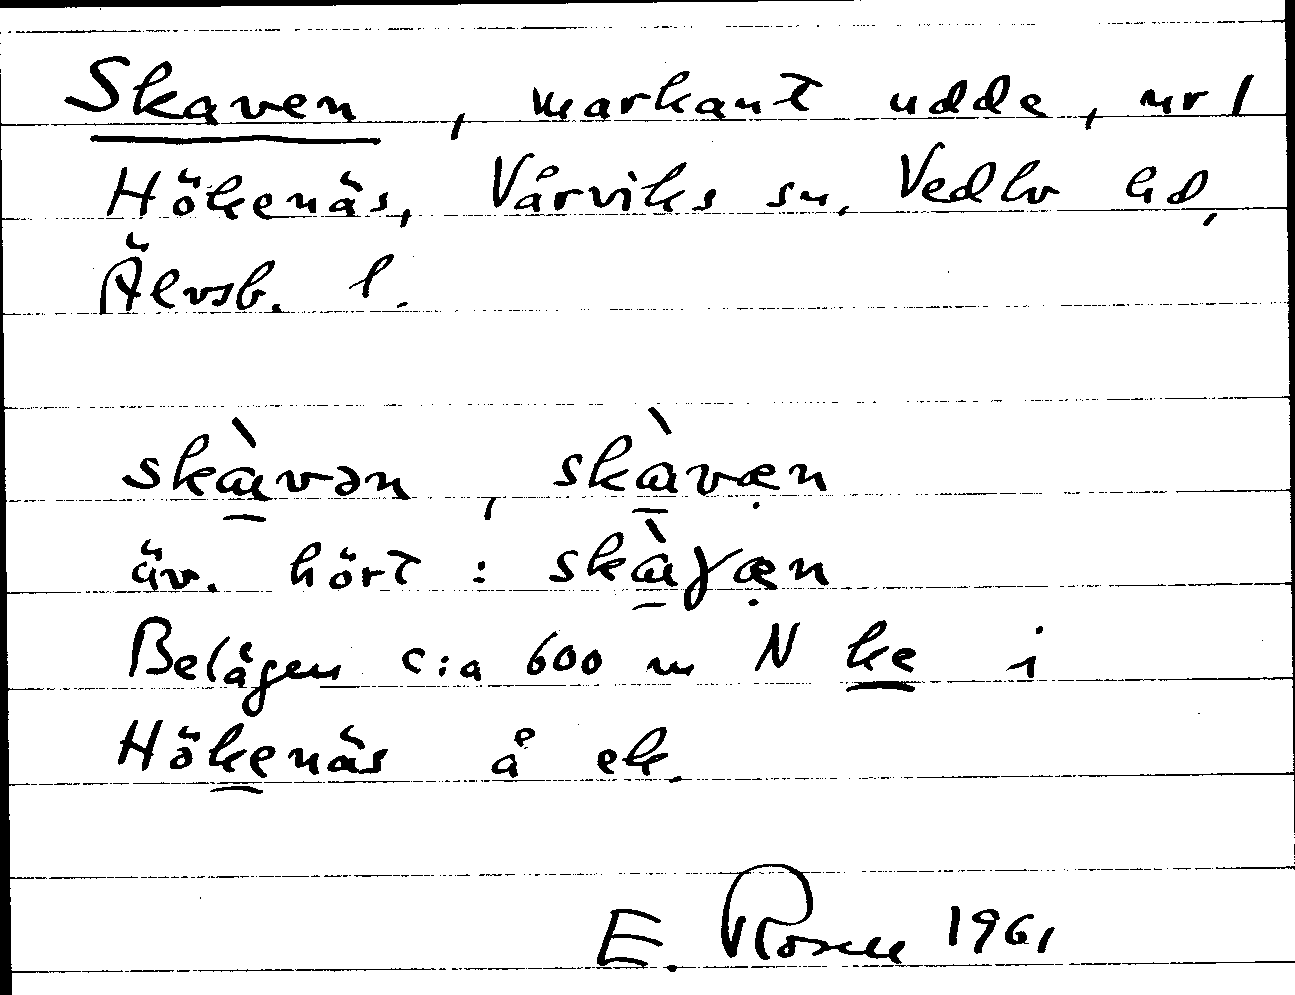 Skaven, markant udde, nr 1
Hökenäs, Vårviks sn, Vedbo hd,
Älvsb. l.
skɑ̀vən, skàvæ̣n
äv. hört: skɑ̀ɣæ̣n
Belägen c:a 600 m N ke i
Hökenäs å ek.
E. Rosell 1961